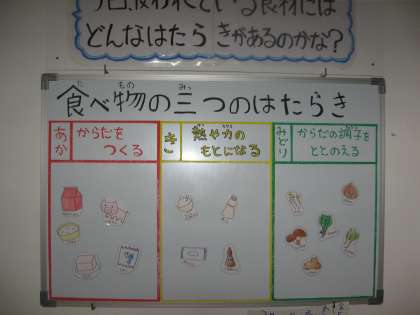 今日使われている食材には
どんなはたらきがあるのかな？
食べ物の三つのはたらき
た もの みっ
あか
からだを
つくる
きいろ
熱や力の
もとになる
みどり
からだの調子を
ととのえる